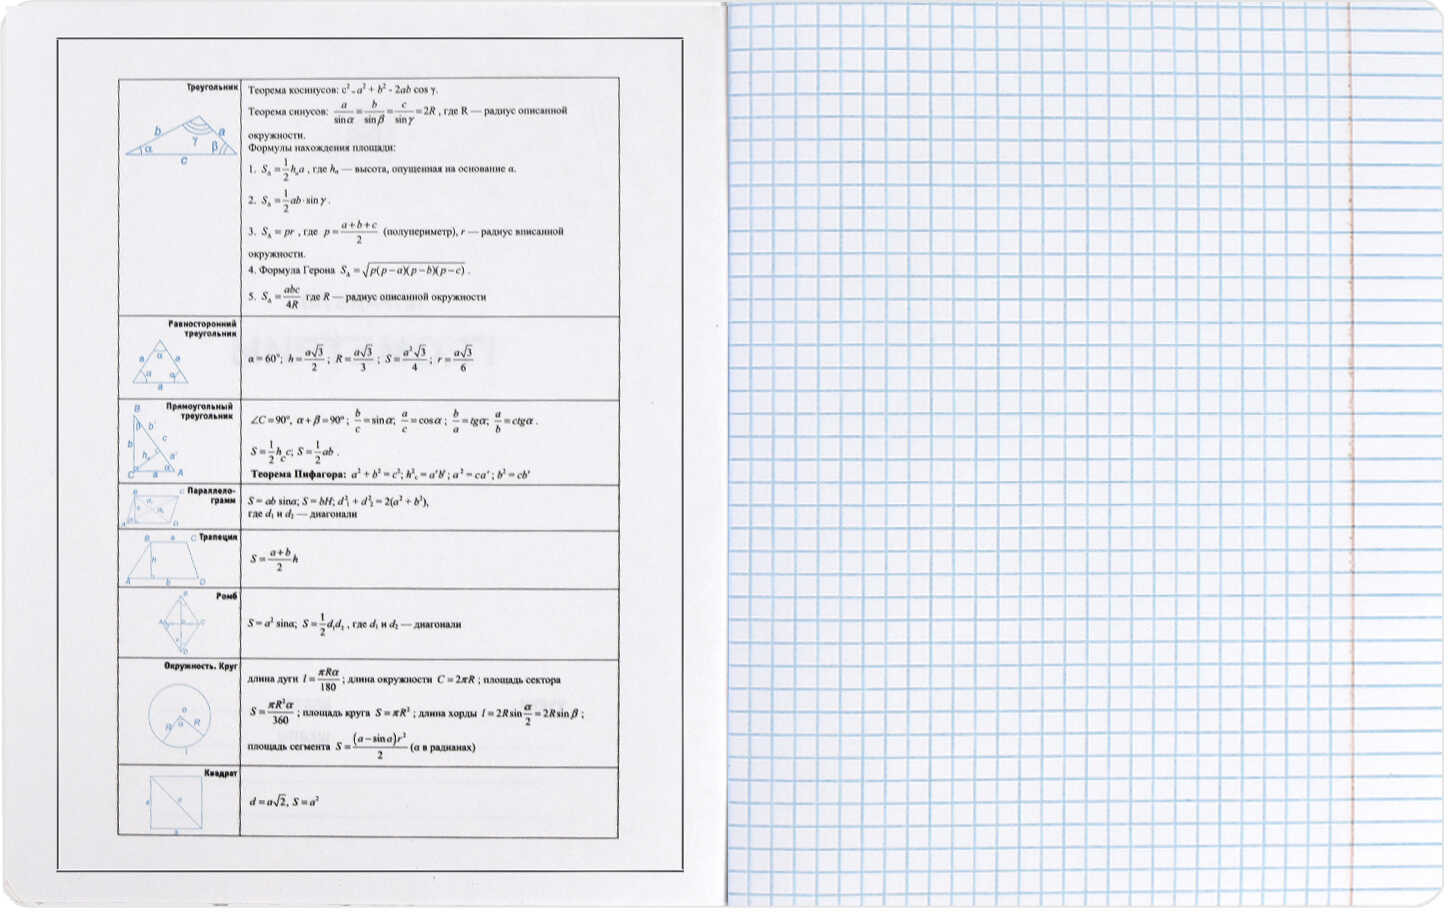 Треугольник
b a γ α β c
Теорема косинусов: c² - a² + b² - 2ab cos γ.
Теорема синусов: a/sin α = b/sin β = c/sin γ = 2R , где R — радиус описанной
окружности.
Формулы нахождения площади:
1. S_Δ = 1/2 h_a a , где hₐ — высота, опущенная на основание a.
2. S_Δ = 1/2 ab · sin γ .
3. S_Δ = pr , где p = (a + b + c)/2 (полупериметр), r — радиус вписанной
окружности.
4. Формула Герона S_Δ = √(p(p − a)(p − b)(p − c)) .
5. S_Δ = abc/4R где R — радиус описанной окружности
Равносторонний
треугольник
a α a α α a
α = 60°; h = a√3/2 ; R = a√3/3 ; S = a²√3/4 ; r = a√3/6
Прямоугольный
треугольник
B β b' b c h a' C a α A
∠C = 90°, α + β = 90° ; b/c = sin α; a/c = cos α ; b/a = tgα; a/b = ctgα .
S = 1/2 h_c c; S = 1/2 ab .
Теорема Пифагора: a² + b² = c²; h²_c = a'b' ; a² = ca' ; b² = cb'
Параллело-
грамм
S = ab sinα; S = bH; d²₁ + d²₂ = 2(a² + b²),
где d₁ и d₂ — диагонали
Трапеция
B a C h A b D
S = (a + b)/2 h
Ромб
S = a² sinα; S = 1/2 d₁d₂ , где d₁ и d₂ — диагонали
Окружность. Круг
o α R R l
длина дуги l = πRα/180 ; длина окружности C = 2πR ; площадь сектора
S = πR²α/360 ; площадь круга S = πR² ; длина хорды l = 2R sin α/2 = 2R sin β ;
площадь сегмента S = (a − sin a)r²/2 (α в радианах)
Квадрат
d = a√2, S = a²